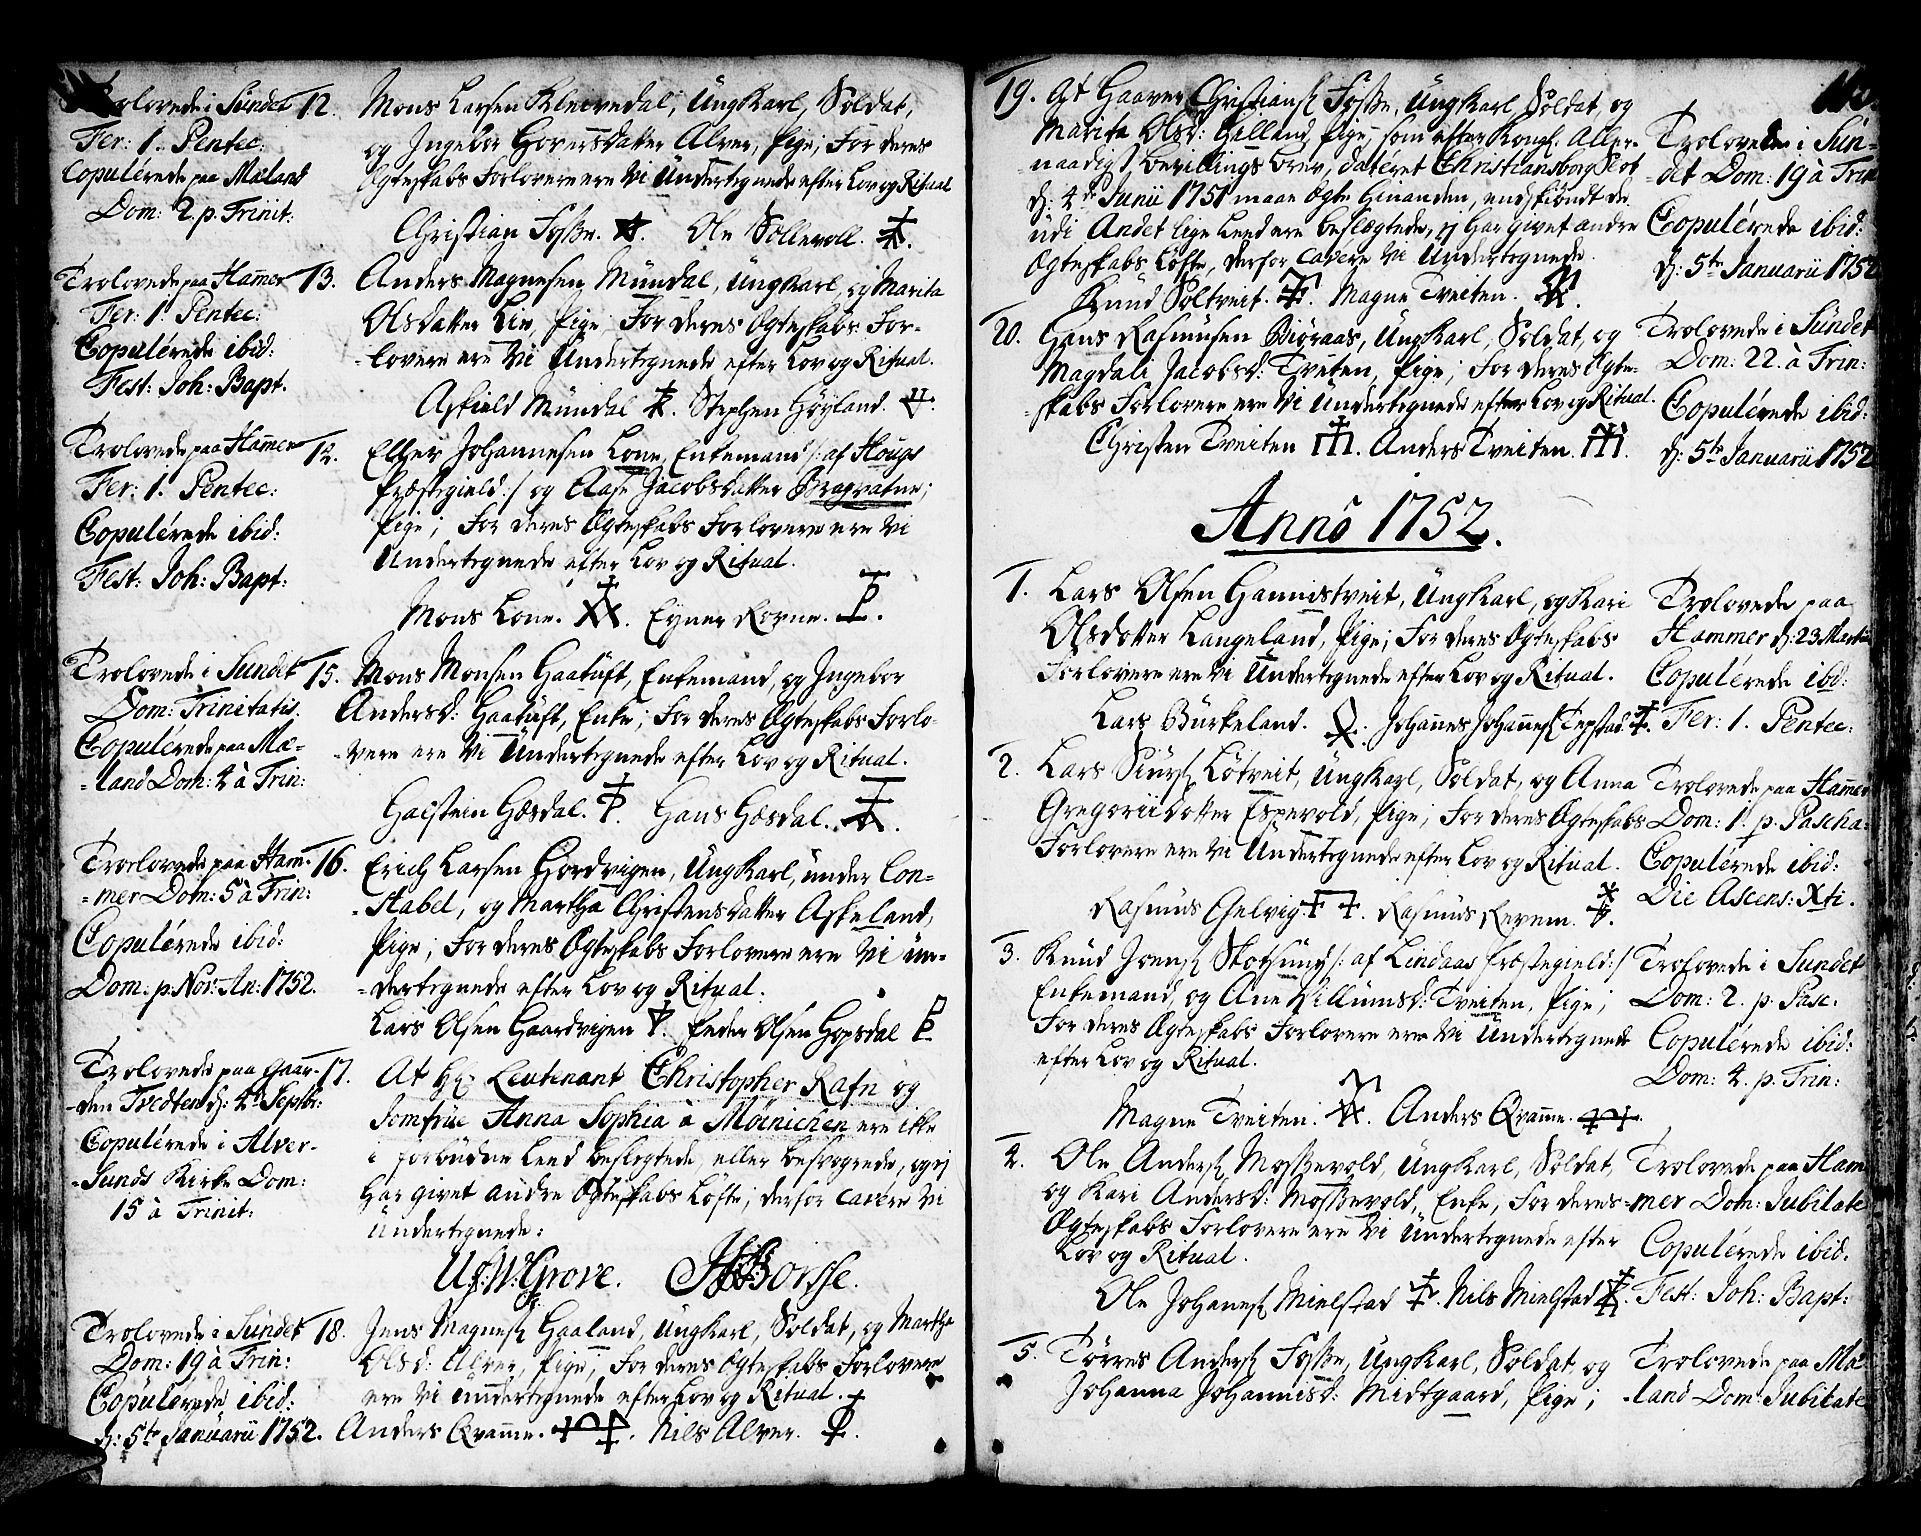 Trolovede i Sundet
Fer: 1. Pentec:
Copulérede paa Mæland
Dom: 2. p. Trinit:
12. Mons Larsen Kleivedal, Ungkarl, Soldat,
og Ingebor Goversdatter Alver, Pige; For deres
Ægteskabs Forlovere ere Vi Undertegnede efter Lov og Ritual
Christian Fosse. Ole Sollevoll.
Trolovede paa Hamer
Fer: 1. Pentec:
Copulérede ibid:
Fest: Joh: Bapt.
13. Anders Magnesen Mundal, Ungkarl, og Marita
Olsdatter Lie, Pige; For deres Ægteskabs For-
-lovere ere Vi Undertegnede efter Lov og Ritual.
Askield Mundal. Stephen Høyland.
Trolovede paa Hamer
Fer: 1. Pentec:
Copulérede ibid:
Fest: Joh: Bapt:
14. Elling Johannesen Lone, Enkemand /: af Hougs
Præstegield :/ og Aase Jacobsdatter Bragvatne;
Pige; For deres Ægteskabs Forlovere ere Vi
Undertegnede efter Lov og Ritual.
Mons Lone. Eyner Rovne.
Trolovede i Sundet
Dom: Trinitatis.
Copulérede paa Mæ-
-land Dom: 4 à Trin:
15. Mons Monsen Gaatuft, Enkemand, og Ingebor
Andersd: Gaatuft, Enke; For deres Ægteskabs Forlo-
-vere ere Vi Undertegnede efter Lov og Ritual.
Galstein Gæsdal. Hans Gæsdal.
Trolovede paa Ham-
-mer Dom: 5 à Trin:
Copulérede ibid:
Dom. p. Nov: An: 1752.
16. Erich Larsen Hordvigen, Ungkarl, under Con-
-Stabel, og Martha Christensdatter Askeland,
Pige; For deres Ægteskabs Forlovere ere Vi un-
-dertegnede efter Lov og Ritual.
Lars Olsen Gaardvigen. Peder Olsen Hopsdal
Trolovede paa Gaar-
-den Tvedten d: 4de Septbr:
Copulérede i Alver-
-Sunds Kirke Dom:
15 à Trinit:
17. At Hr: Leutenant Christopher Rafn og
Jomfrue Anna Sophia à Møinichen ere ikke
i forbudne Leed beslegtede, eller besvogrede, og ej
har givet andre Ægteskabs Løfte; derfor cavére Vi
Undertegnede:
U: F: W: Grove. Borsse.
Trolovede i Sundet
Dom: 19 à Trin:
Copulerede ibid:
d: 5te Januarii 1752.
18. Jens Magnes: Haaland, Ungkarl, Soldat, og Martha
Olsd: Alver, Pige; For deres Ægteskabs Forlovere
ere Vi undertegnede efter Lov og Ritual.
Anders Qvamme. Nils Alver.
19. At Haaver Christians: Fosse, Ungkarl, Soldat, og
Marita Olsd: Helland, Pige, som efter Kongl. Aller-
-naadigst bevillings brev, dateret Christiansborg Slot
d: 4de Junii 1751 maae Ægte hinanden, endskiøndt de
udi Andet lige Leed ere beslægtede, ej har givet andre
Ægteskabs Løfte, derfor cavére Vi Undertegnede.
Knud Soltveit. Magne Tveiten.
Trolovede i Sun-
-det Dom: 19 à Trin
Copulérede ibid:
d: 5te Januarii 1752
20. Hans Rasmusen Biøraas, Ungkarl, Soldat, og
Magdali Jacobsd: Tveiten, Pige; For deres Ægte-
-skabs Forlovere ere Vi Undertegnede efter Lov og Ritual.
Christen Tveiten. Anders Tveiten.
Trolovede i Sundet
Dom: 22. à Trin:
Copulérede ibid:
d: 5te Januarii 1752
Anno 1752.
1. Lars Olsen Hannistveit, Ungkarl, og Kari
Olsdatter Langeland, Pige; For deres Ægteskabs
Forlovere ere Vi Undertegnede efter Lov og Ritual.
Lars Burkeland. Johannes Johannes: Tepstad.
Trolovede paa
Hammer d: 23 Martii
Copulérede ibid:
Fer: 1. Pentec:
2. Lars Siurs: Løtveit, Ungkarl, Soldat, og Anna
Gregoriidatter Espevold, Pige; For deres Ægteskabs
Forlovere ere Vi Undertegnede efter Lov og Ritual.
Rasmus Helvig. Rasmus Revem.
Trolovede paa Hamer
Dom: 1. p. Pascha:
Copulérede ibid:
Die Ascens: Xti.
3. Knud Joens: Skotsund /: af Lindaas Præstegield :/
Enkemand, og Ane Villumsd: Tveiten, Pige;
For deres Ægteskabs Forlovere ere Vi Undertegnede
efter Lov og Ritual.
Magne Tveiten. Anders Qvamme.
Trolovede i Sundet
Dom: 2. p. Pasc:
Copulérede ibid:
Dom: 4. p. Trin:
4. Ole Anders: Mossevold, Ungkarl, Soldat,
og Kari Andersd: Mossevold, Enke, For deres
Ægteskabs Forlovere ere Vi Undertegnede efter
Lov og Ritual.
Ole Johanes: Mielstad. Nils Mielstad.
Trolovede paa Ham
-mer Dom: Jubilate
Copulérede ibid.
Fest: Joh: Bapt:
5. Torres Anders: Fosse, Ungkarl, Soldat, og
Johanna Johannisd: Midtgaard, Pige;
Trolovede paa Mæ
-land Dom: Jubilate